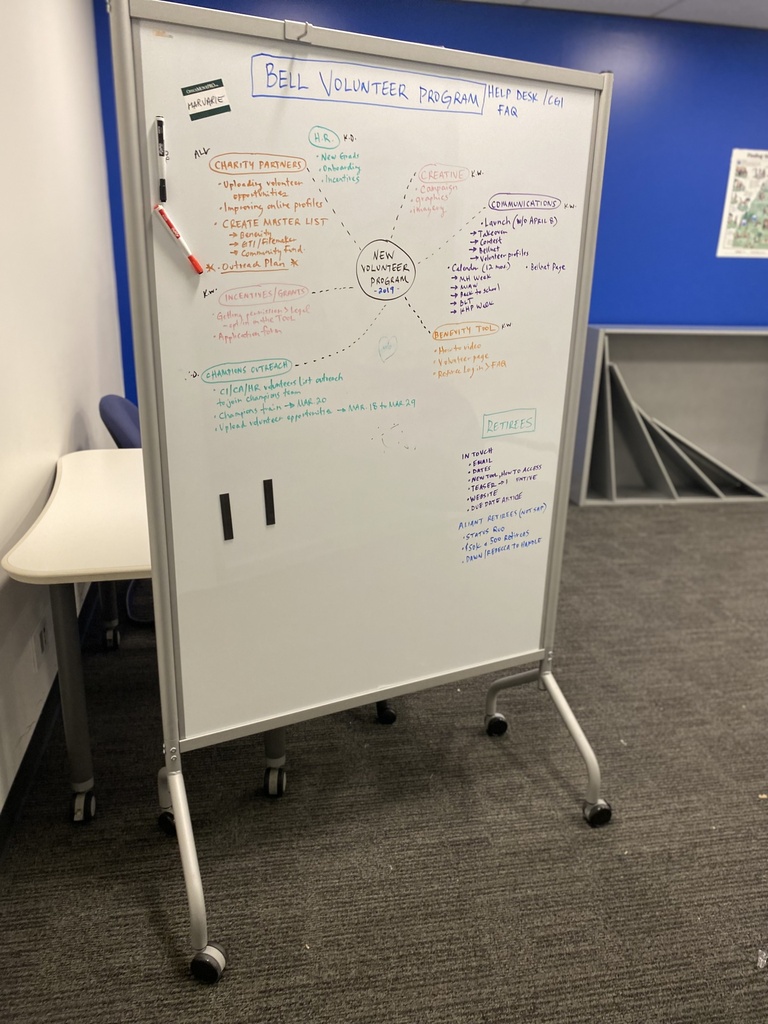 BELL VOLUNTEER PROGRAM
HELP DESK / CGI
FAQ
MARVARIE
H.R. K.D.
• New Grads
• Onboarding
• Incentives
CHARITY PARTNERS
• Uploading volunteer
opportunities
• Improving online profiles
• CREATE MASTER LIST
→ Benevity
→ GTI/Filemaker
→ Community Fund
* • Outreach Plan *
CREATIVE K.W.
• Campaign
graphics
• Imagery
COMMUNICATIONS K.W.
• Launch (W/O APRIL 8)
→ Takeover
→ Contest
→ Bellnet
→ Volunteer profiles
• Calendar (12 mos)
→ MH Week
→ NVAW
→ Back to School
→ BLT
→ KHP Week
• Bellnet Page
NEW
VOLUNTEER
PROGRAM
- 2019 -
K.W. INCENTIVES/GRANTS
• Getting permission > Legal
in the Tool
• Application form
BENEVITY TOOL K.W
• How to video
• Volunteer page
• Retiree log in > FAQ
CHAMPIONS OUTREACH
• CI/CA/HR volunteers list outreach
to join champions team
• Champions train → MAR. 20
• Upload volunteer opportunities → MAR. 18 to MAR 29
RETIREES
IN TOUCH
• EMAIL
• DATES
• NEW TOOL, HOW TO ACCESS
• TEASER →
• WEBSITE
• DUE DATE ARTICLE
ALIANT RETIREES (NOT SAP)
• STATUS QUO
• $50K + 500 Retirees
• DAWN/REBECCA TO HANDLE